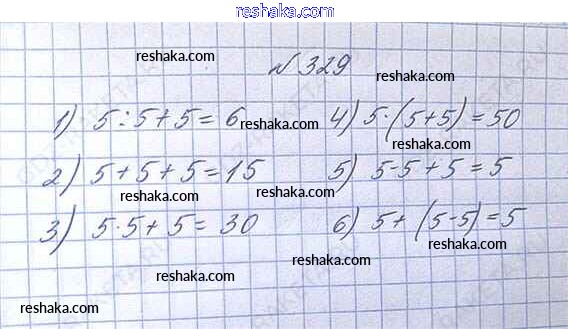 reshaka.com
№ 329
reshaka.com
reshaka.com
1) 5:5+5=6
reshaka.com
4) 5·(5+5)=50
reshaka.com
2) 5+5+5=15
5) 5-5+5=5
reshaka.com
reshaka.com
3) 5·5+5=30
6) 5+(5-5)=5
reshaka.com
reshaka.com
reshaka.com
reshaka.com